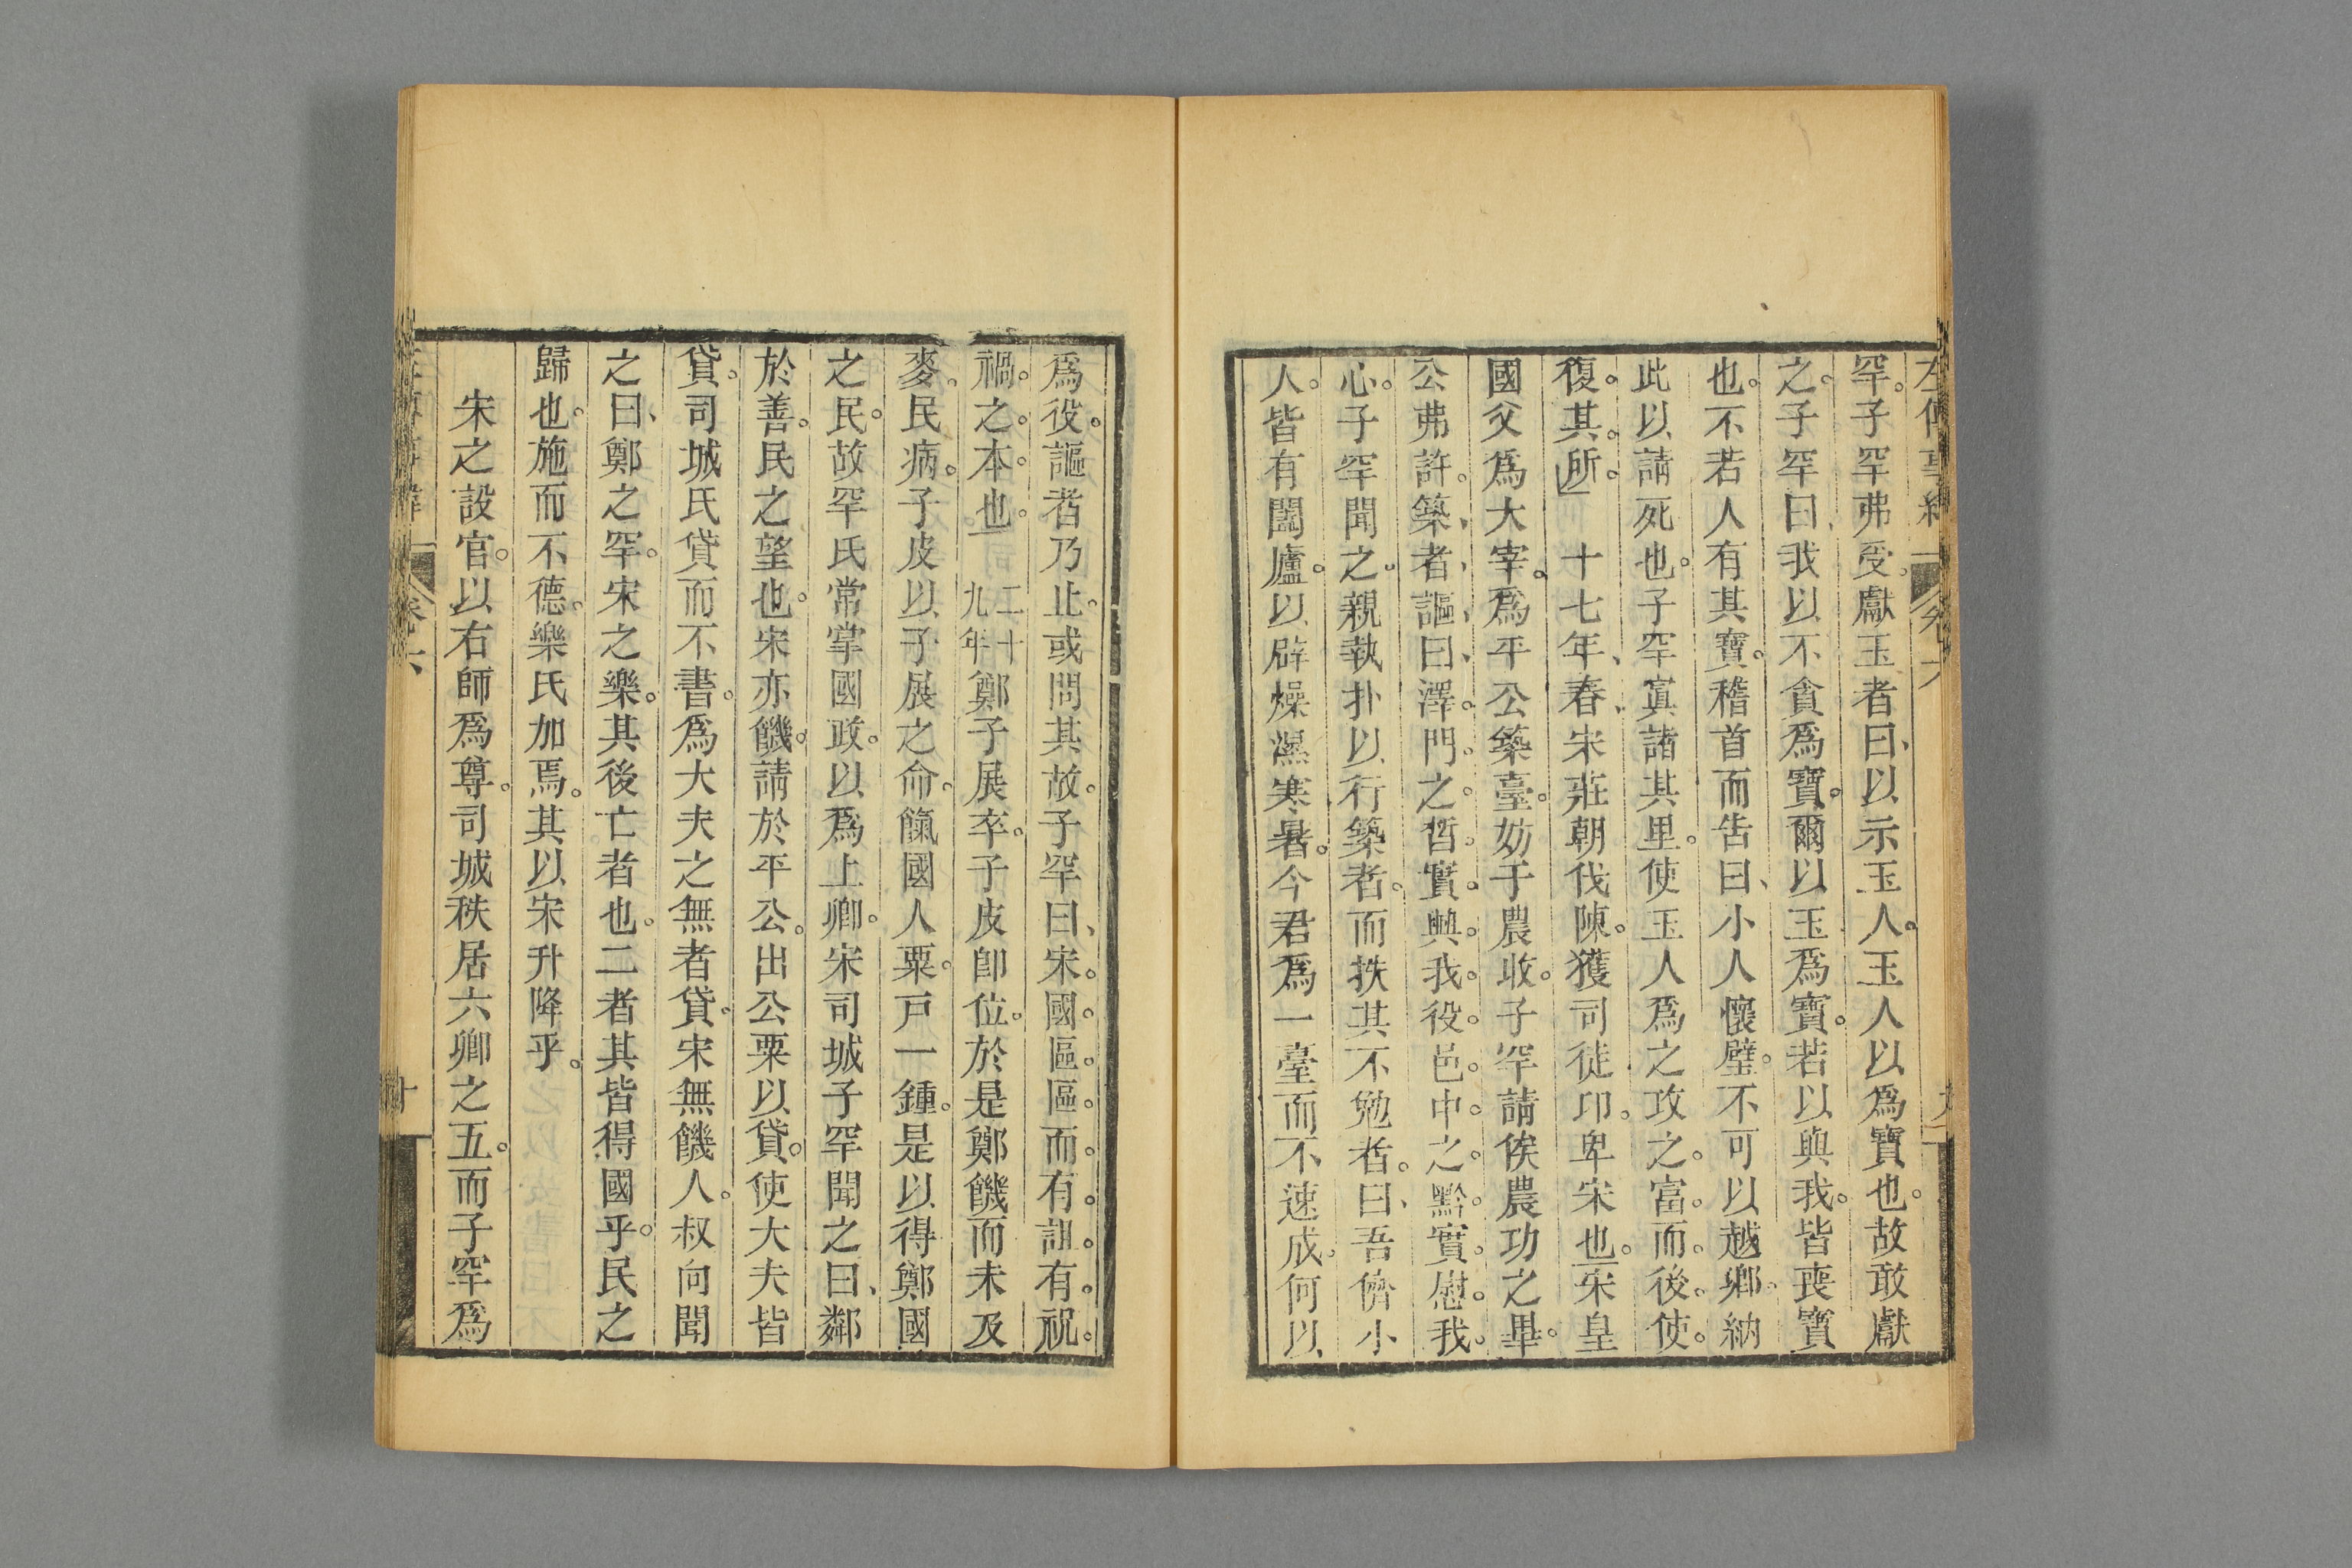 罕。子罕弗受。獻玉者曰、以示玉人。玉人以爲寶也。故敢獻
之。子罕曰、我以不貪爲寶。爾以玉爲寶。若以與我。皆喪寶
也。不若人有其寶。稽首而告曰、小人懷璧。不可以越鄕。納
此以請死也。子罕寘諸其里。使玉人爲之攻之。富。而。後。使。
復。其。所。十七年、春、宋莊朝伐陳。獲司徒卬。卑宋也。宋皇
國父爲大宰。爲平公築臺。妨于農收。子罕請俟農功之畢。
公弗許。築、者、謳、曰、澤。門。之。晳。實。興。我。役。邑。中。之。黔。實。慰。我。
心。子罕聞之。親執扑以行築者。而抶其不勉者。曰、吾儕小
人。皆有闔廬。以辟燥濕寒暑。今君爲一臺而不速成。何以
爲役。謳者乃止。或問其故。子罕曰、宋。國。區。區。而。有。詛。有。祝。
禍。之。本。也。二十九年鄭子展卒。子皮卽位。於是鄭饑而未及
麥。民病。子皮以子展之命。餼國人粟。戸一鍾。是以得鄭國
之民。故罕氏常掌國政。以爲上卿。宋司城子罕聞之曰、鄰
於善。民之望也。宋亦饑。請於平公。出公粟以貸。使大夫皆
貸。司城氏貸而不書。爲大夫之無者貸。宋無饑人。叔向聞
之曰、鄭之罕。宋之樂。其後亡者也。二者其皆得國乎。民之
歸也。施而不德。樂氏加焉。其以宋升降乎。
宋之設官。以右師爲尊。司城秩居六卿之五。而子罕爲